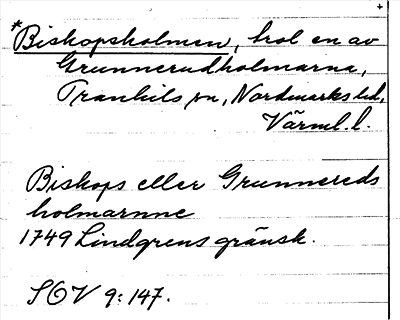 *Biskopsholmen, trol en av
Grunnerudholmarna,
Trankils sn, Nordmarks hd,
Värml. l.
Biskops eller Grunnereds
holmarnne
1749 Lindgrens gränsk.
SOV 9:147.